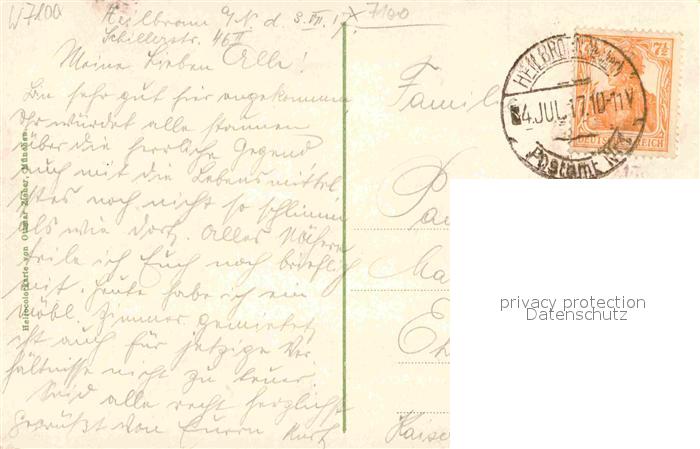 W7100
Heilbronn a/N. d. 3. VII. 17.
x 7100
Schillerstr. 46 II
Meine Lieben Alle!
Bin sehr gut hier angekommen
Ihr würdet alle staunen
über die herrliche Gegend
auch mit die Lebensmittel
ist es noch nicht so schlimm
als wie dort. Alles Nähere
teile ich Euch noch brieflich
mit. Heute habe ich ein
möbl. Zimmer gemietet
ist auch für jetzige Ver
hältnisse nicht zu teuer.
Seid alle recht herzlichst
gegrüßt von Eurem Kurt
Heliocolorkarte von Ottmar Zieher, München
Famili
Pa
Ma
Eh
Kaise
HEILBRONN
4.JUL.17.10-11V
Postamt No.1
7½
7½
DEUTSCHES REICH
privacy protection
Datenschutz